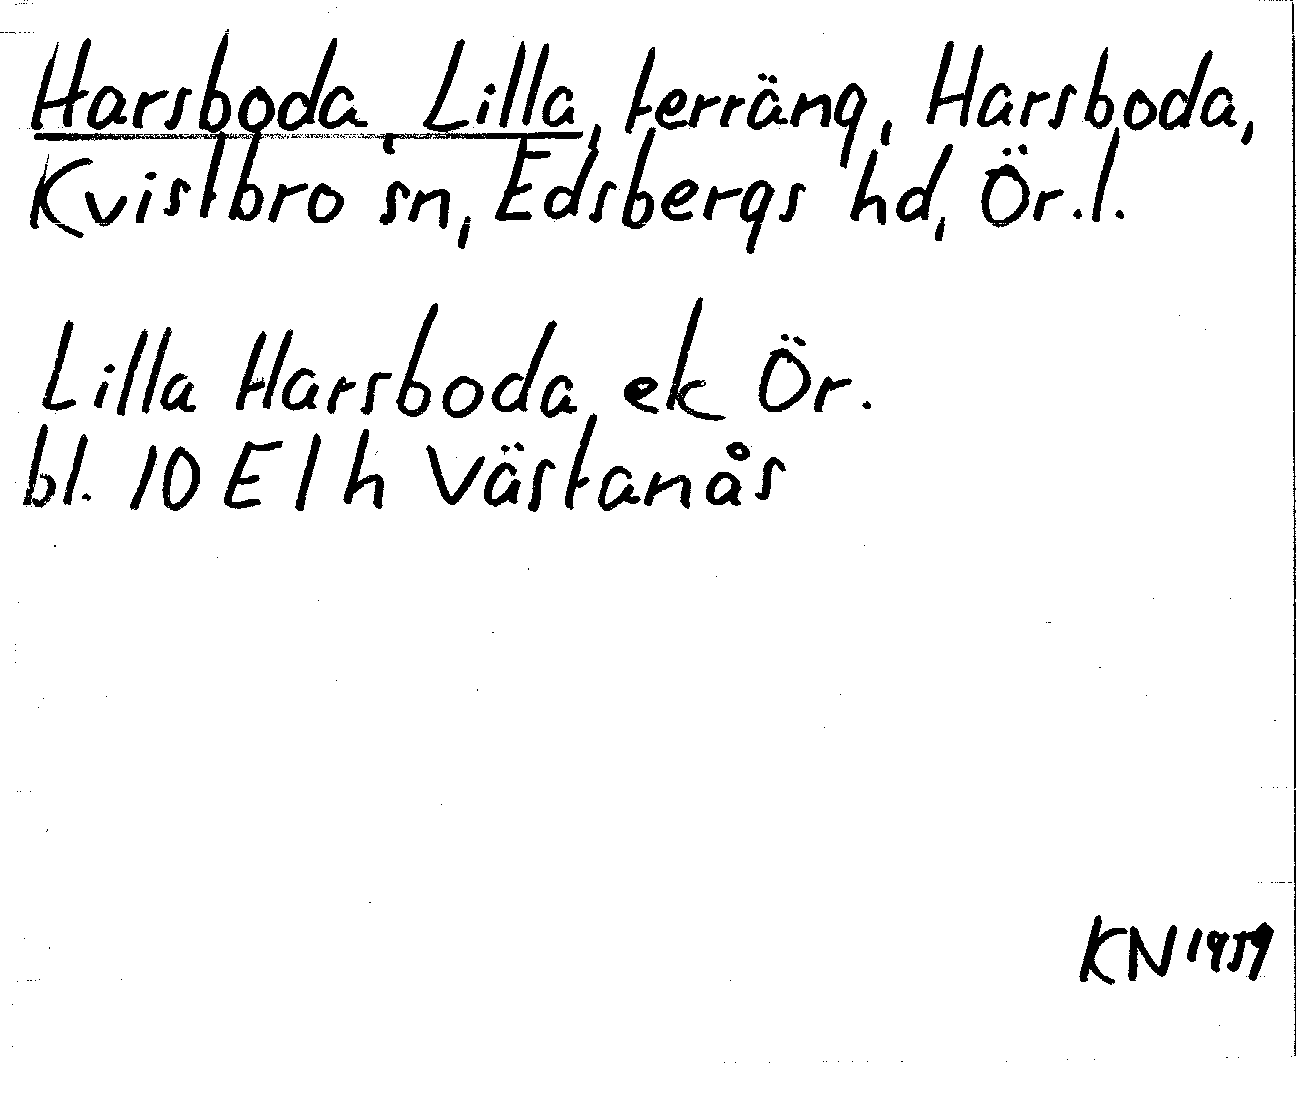 Harsboda, Lilla, terräng, Harsboda,
Kvistbro sn, Edsbergs hd, Ör.l.
Lilla Harsboda ek Ör.
bl. 10 E 1 h Västanås
KN 1959